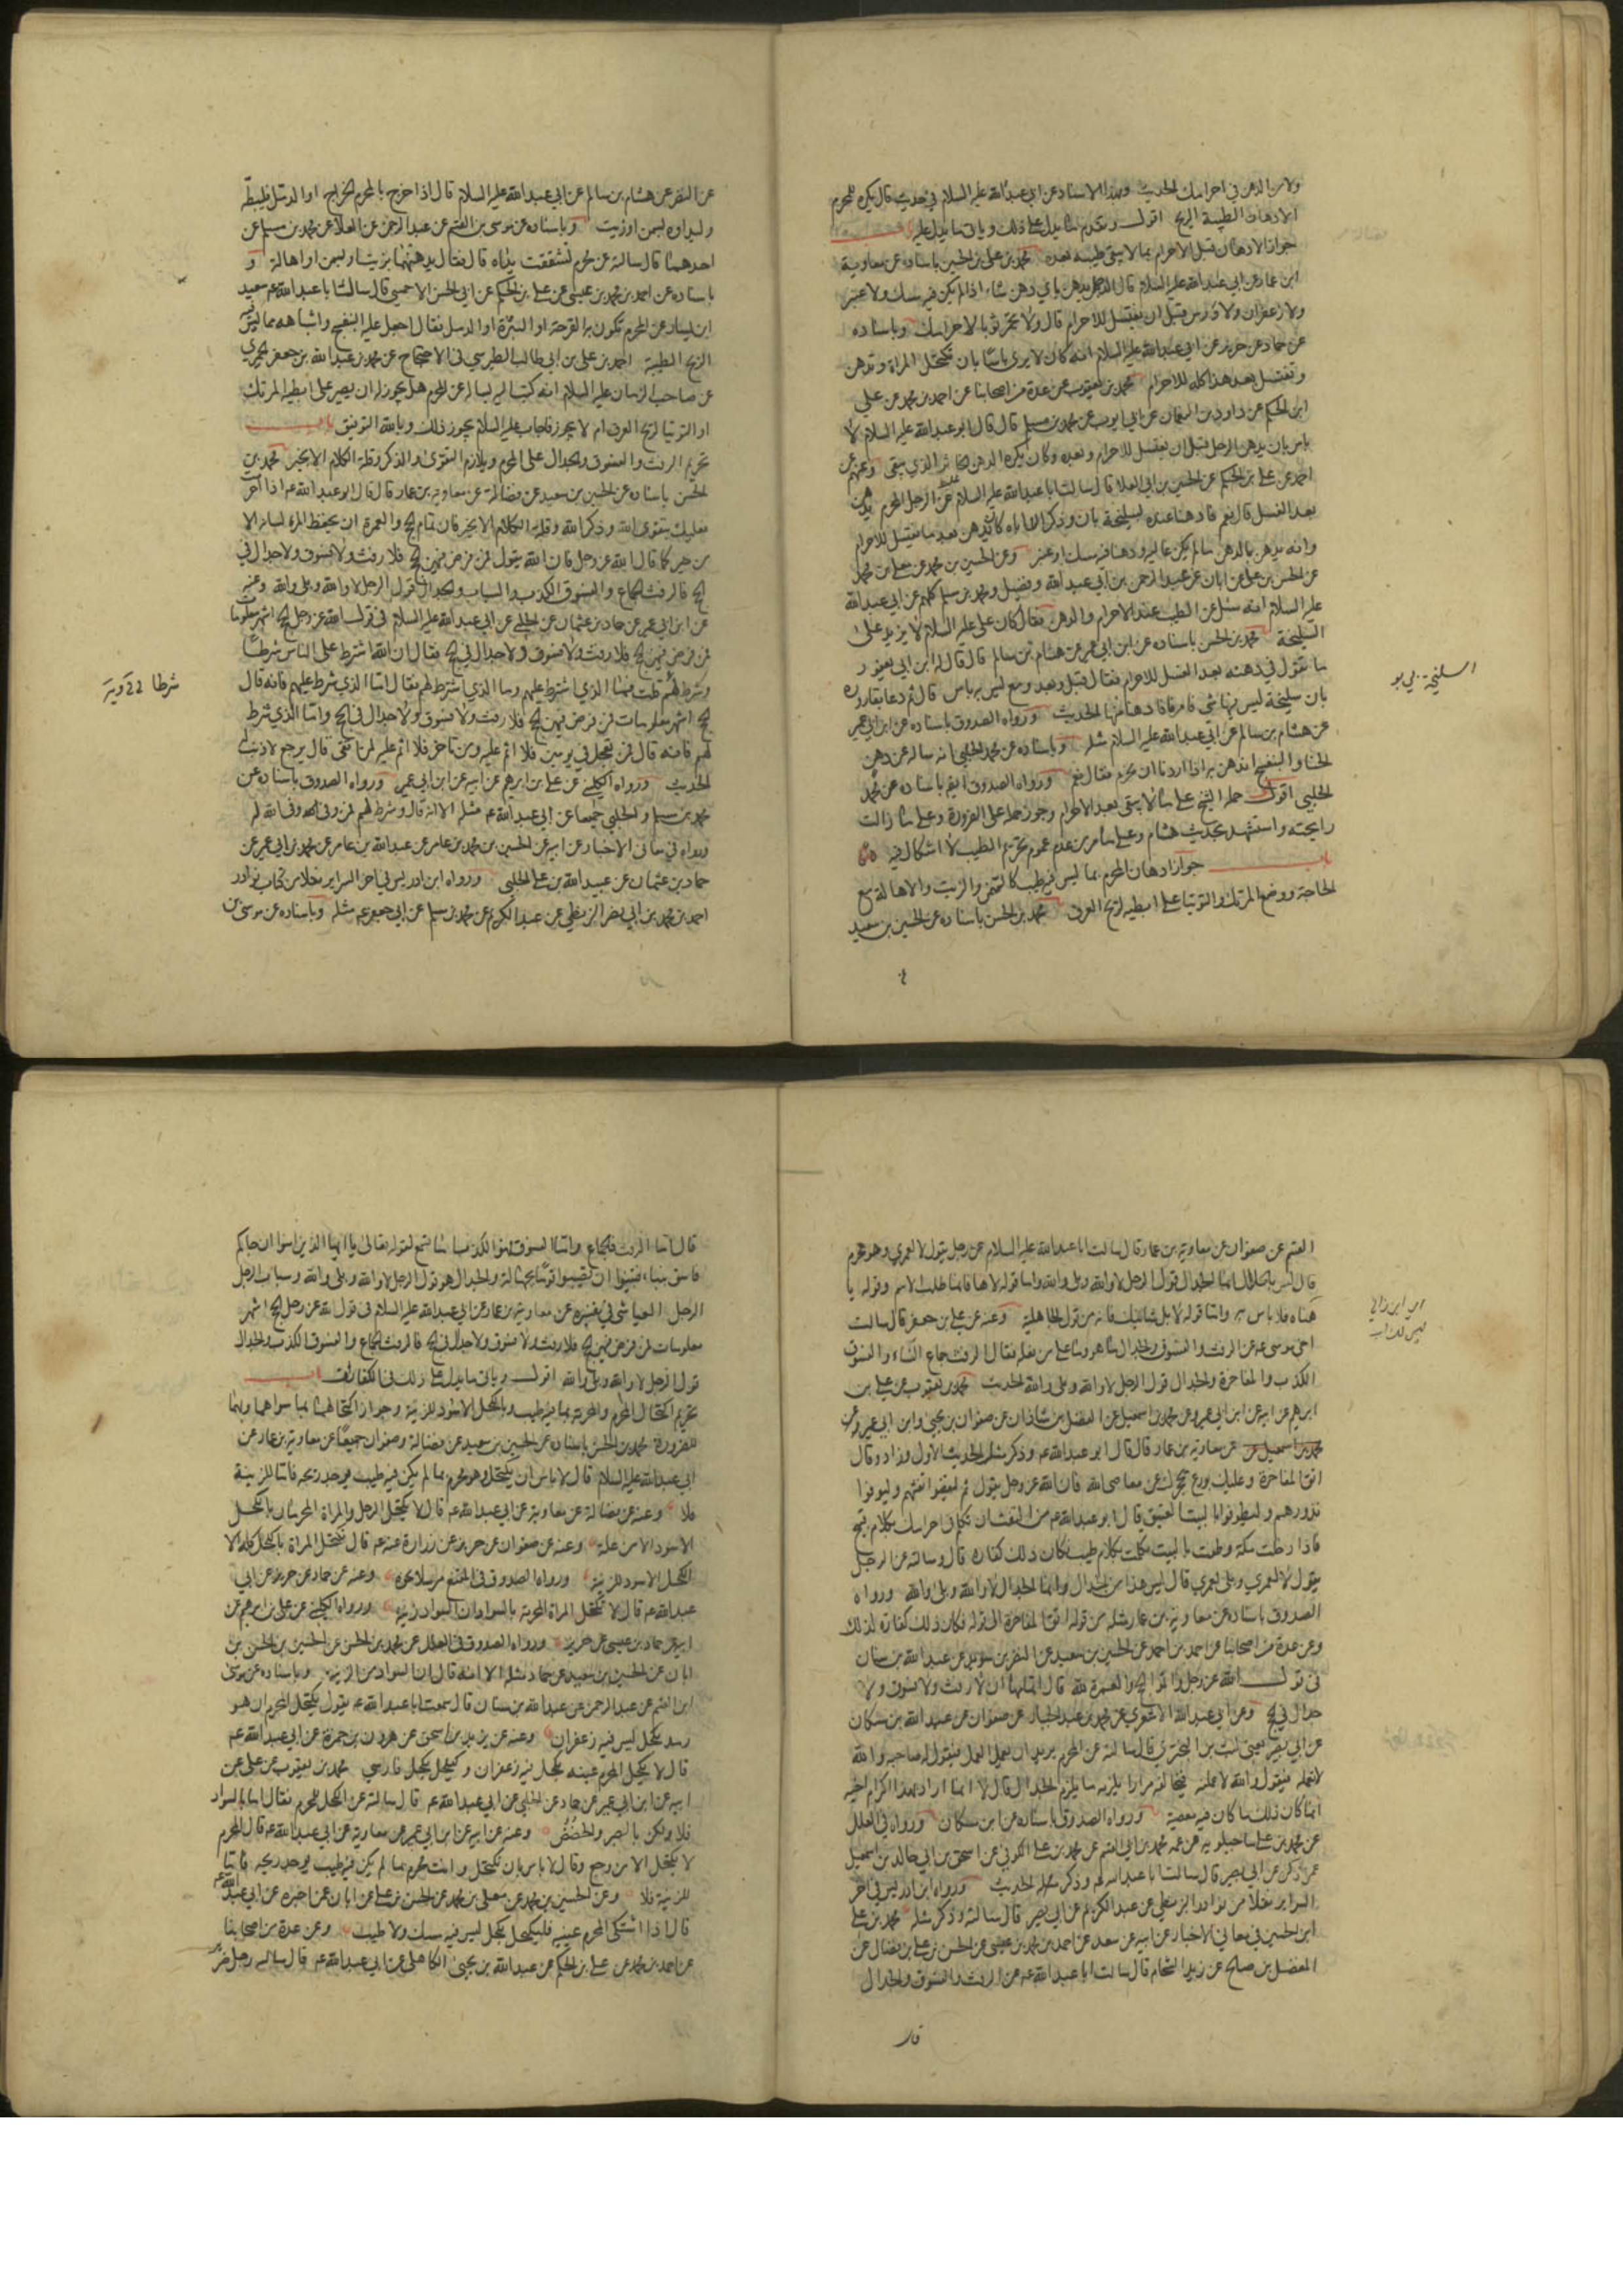 ولا من الدهن في احرامك الحديث وبهذا الاسناد عن ابي عبدالله عليه السلام في حديث قال يكره للمحرم
الادهان الطيبة الريح اقول وتقدم ما يدل على ذلك وياتي ما يدل عليه باب
جواز الادهان قبل الاحرام بما لا يبقى طيبه بعده محمد بن علي بن الحسين باسناده عن معاوية
ابن عمار عن ابي عبدالله عليه السلام قال الرجل يدهن باي دهن شاء اذا لم يكن فيه مسك ولا عنبر
ولا زعفران ولا ورس قبل ان يغتسل للاحرام قال ولا تجمر ثوبا لاحرامك وباسناده
عن حماد عن حريز عن ابي عبدالله عليه السلام انه كان لا يرى باسا بان تكتحل المراة وتدهن
وتغتسل بعد هذا كله للاحرام محمد بن يعقوب عن عدة من اصحابنا عن احمد بن محمد عن علي
ابن الحكم عن داود بن النعمان عن ابي ايوب عن محمد بن مسلم قال قال ابو عبدالله عليه السلام لا
باس بان يدهن الرجل قبل ان يغتسل للاحرام وبعده وكان يكره الدهن الخاثر الذي يبقى وعنهم عن
احمد عن علي بن الحكم عن الحسين بن ابي العلا قال سالت ابا عبدالله عليه السلام عن الرجل المحرم يدهن
بعد الغسل قال نعم فادهنا عنده بسليخة بان وذكر ان اباه كان يدهن بعد ما يغتسل للاحرام
وانه يدهن بالدهن ما لم يكن غالية او دهنا فيه مسك او عنبر وعن الحسين بن محمد عن معلى بن محمد
عن الحسن بن علي عن ابان عن عبدالرحمن بن ابي عبدالله وفضيل ومحمد بن مسلم كلهم عن ابي عبدالله
عليه السلام انه سئل عن الطيب عند الاحرام والدهن فقال كان علي عليه السلام لا يزيد على
السليخة محمد بن الحسن باسناده عن ابن ابي عمير عن هشام بن سالم قال قال له ابن ابي يعفور
ما تقول في دهنه بعد الغسل للاحرام فقال قبل وبعد ومع ليس به باس قال ثم دعا بقارورة
بان سليخة ليس فيها شي فامرنا فادهنا منها الحديث ورواه الصدوق باسناده عن ابن ابي عمير
عن هشام بن سالم عن ابي عبدالله عليه السلام مثله وباسناده عن محمد الحلبي انه ساله عن دهن
الحنا والبنفسج اندهن به اذا اردنا ان نحرم فقال نعم ورواه الصدوق ايضا باسناده عن محمد
الحلبي اقول حمله الشيخ على ما لا يبقى بعد الاحرام وجوز حمله على الضرورة وعلى ما زالت
رايحته واستشهد بحديث هشام وعلى ما مر من عدم عموم تحريم الطيب لا اشكال فيه
باب جواز ادهان المحرم بما ليس فيه طيب كالسمن والزيت والاهالة مع
الحاجة ووضع المرتك والتوتيا على ابطيه لريح العرق محمد بن الحسن باسناده عن الحسين بن سعيد
عن النضر عن هشام بن سالم عن ابي عبدالله عليه السلام قال اذا خرج بالمحرم الخراج او الدمل فليبطه
وليداوه بسمن او زيت وباسناده عن موسى بن القسم عن عبدالرحمن عن العلا عن محمد بن مسلم عن
احدهما قال سالته عن محرم تشققت يداه قال فقال يدهنهما بزيت او بسمن او اهالة و
باسناده عن احمد بن محمد بن عيسى عن علي بن الحكم عن ابي الحسن الاحمسي قال سال ابا عبدالله ع سعيد
ابن يسار عن المحرم تكون به القرحة او البثرة او الدمل فقال اجعل عليه البنفسج واشباهه مما ليس فيه
الريح الطيبة احمد بن علي بن ابي طالب الطبرسي في الاحتجاج عن محمد بن عبدالله بن جعفر الحميري
عن صاحب الزمان عليه السلام انه كتب اليه يساله عن المحرم هل يجوز له ان يصير على ابطيه المرتك
او التوتيا لريح العرق ام لا يجوز فاجاب عليه السلام يجوز ذلك وبالله التوفيق باب
تحريم الرفث والفسوق والجدال على المحرم ويلازم التقوى والذكر وقلة الكلام الا بخير محمد بن
الحسن باسناده عن الحسين بن سعيد عن فضالة عن معاوية بن عمار قال قال ابو عبدالله ع اذا احرمت
فعليك بتقوى الله وذكر الله وقلة الكلام الا بخير فان تمام الحج والعمرة ان يحفظ المرء لسانه الا
من خير كما قال الله عز وجل فان الله يقول فمن فرض فيهن الحج فلا رفث ولا فسوق ولا جدال في
الحج فالرفث الجماع والفسوق الكذب والسباب والجدال قول الرجل لا والله وبلى والله وعنه
عن ابن ابي عمير عن حماد بن عثمان عن الحلبي عن ابي عبدالله عليه السلام في قول الله عز وجل الحج اشهر معلومات
فمن فرض فيهن الحج فلا رفث ولا فسوق ولا جدال في الحج فقال ان الله اشترط على الناس شرطا
وشرط لهم قلت فما الذي اشترط عليهم وما الذي اشترط لهم فقال اما الذي شرط عليهم فانه قال
الحج اشهر معلومات فمن فرض فيهن الحج فلا رفث ولا فسوق ولا جدال في الحج واما الذي شرط
لهم فانه قال فمن تعجل في يومين فلا اثم عليه ومن تاخر فلا اثم عليه لمن اتقى قال يرجع لا ذنب له
الحديث ورواه الكليني عن علي بن ابراهيم عن ابيه عن ابن ابي عمير ورواه الصدوق باسناده عن
محمد بن مسلم والحلبي جميعا عن ابي عبدالله ع مثله الا انه قال وشرط لهم فمن وفى لله وفى الله لهم
ورواه في معاني الاخبار عن ابيه عن الحسين بن محمد بن عامر عن عبدالله بن عامر عن محمد بن ابي عمير عن
حماد بن عثمان عن عبيدالله بن علي الحلبي ورواه ابن ادريس في اخر السراير نقلا من كتاب نوادر
احمد بن محمد بن ابي نصر البزنطي عن عبدالكريم عن محمد بن مسلم عن ابي جعفر ع مثله وباسناده عن موسى بن
القسم عن صفوان عن معاوية بن عمار قال سالت ابا عبدالله عليه السلام عن رجل يقول لا لعمري وهو محرم
قال ليس بالجدال انما الجدال قول الرجل لا والله وبلى والله واما قوله لاها فانما طلب الاسم وقوله يا
هناه فلا باس به واما قوله لا بل شانيك فانه من قول الجاهلية وعنه عن علي بن جعفر قال سالت
اخي موسى ع عن الرفث والفسوق والجدال ما هو وما على من فعله فقال الرفث جماع النساء والفسوق
الكذب والمفاخرة والجدال قول الرجل لا والله وبلى والله الحديث محمد بن يعقوب عن علي بن
ابرهيم عن ابيه عن ابن ابي عمير وعن محمد بن اسمعيل عن الفضل بن شاذان عن صفوان بن يحيى وابن ابي عمير وعن
محمد بن اسمعيل عن معاوية بن عمار قال قال ابو عبدالله ع وذكر مثل الحديث الاول وزاد وقال
اتق المفاخرة وعليك بورع يحجزك عن معاصي الله فان الله عز وجل يقول ثم ليقضوا تفثهم وليوفوا
نذورهم وليطوفوا بالبيت العتيق قال ابو عبدالله ع من التفث ان تتكلم في احرامك بكلام قبيح
فاذا دخلت مكة وطفت بالبيت تكلمت بكلام طيب فكان ذلك كفارة قال وسالته عن الرجل
يقول لا لعمري وبلى لعمري قال ليس هذا من الجدال وانما الجدال لا والله وبلى والله ورواه
الصدوق باسناده عن معاوية بن عمار مثله من قوله اتق المفاخرة الى قوله فكان ذلك كفارة لذلك
وعن عدة من اصحابنا عن احمد بن محمد عن الحسين بن سعيد عن النضر بن سويد عن عبدالله بن سنان
في قول الله عز وجل واتموا الحج والعمرة لله قال اتمامها ان لا رفث ولا فسوق ولا
جدال في الحج وعن ابي عبدالله الاشعري عن محمد بن عبدالجبار عن صفوان عن عبدالله بن مسكان
عن ابي بصير يعني ليث بن البختري قال سالته عن المحرم يريد ان يعمل العمل فيقول له صاحبه والله
لا تعمله فيقول والله لاعملنه فيخالفه مرارا يلزمه ما يلزم الجدال قال لا انما اراد بهذا اكرام اخيه
انما كان ذلك ما كان فيه معصية ورواه الصدوق باسناده عن ابن مسكان ورواه في العلل
عن محمد بن علي ماجيلويه عن عمه محمد بن ابي القسم عن محمد بن علي الكوفي عن اسحق بن ابي خالد بن اسمعيل
عن ذكره عن ابي بصير قال سالت ابا عبدالله ع وذكر مثله الحديث ورواه ابن ادريس في اخر
السراير نقلا من نوادر البزنطي عن عبدالكريم عن ابي بصير قال سالته وذكر مثله محمد بن علي
ابن الحسين في معاني الاخبار عن ابيه عن سعد عن احمد بن محمد بن عيسى عن الحسن بن علي بن فضال عن
المفضل بن صالح عن زيد الشحام قال سالت ابا عبدالله ع عن الرفث والفسوق والجدال
قال اما الرفث فالجماع واما الفسوق فهو الكذب اما تسمع لقوله تعالى يا ايها الذين امنوا ان جاءكم
فاسق بنبا فتبينوا ان تصيبوا قوما بجهالة والجدال هو قول الرجل لا والله وبلى والله وسباب الرجل
الرجل العياشي في تفسيره عن معاوية بن عمار عن ابي عبدالله عليه السلام في قول الله عز وجل الحج اشهر
معلومات فمن فرض فيهن الحج فلا رفث ولا فسوق ولا جدال في الحج فالرفث الجماع والفسوق الكذب والجدال
قول الرجل لا والله وبلى والله اقول وياتي ما يدل على ذلك في الكفارات باب
تحريم اكتحال المحرم والمحرمة بما فيه طيب وبالكحل الاسود للزينة وجواز اكتحالهما بما سواهما وبهما
للضرورة محمد بن الحسن باسناده عن الحسين بن سعيد عن فضالة وصفوان جميعا عن معاوية بن عمار عن
ابي عبدالله عليه السلام قال لا باس ان يكتحل وهو محرم بما لم يكن فيه طيب يوجد ريحه فاما للزينة
فلا وعنه عن فضالة عن معاوية عن ابي عبدالله ع قال لا يكتحل الرجل والمراة المحرمان بالكحل
الاسود الا من علة وعنه عن صفوان عن حريز عن زرارة عنه ع قال تكتحل المراة بالكحل كله الا
الكحل الاسود للزينة ورواه الصدوق في المقنع مرسلا نحوه وعنه عن حماد عن حريز عن ابي
عبدالله ع قال لا تكتحل المراة المحرمة بالسواد ان السواد زينة ورواه الكليني عن علي بن ابرهيم عن
ابيه عن حماد بن عيسى عن حريز ورواه الصدوق في العلل عن محمد بن الحسن عن الحسين بن الحسن بن
ابان عن الحسين بن سعيد عن حماد مثله الا انه قال ان السواد من الزينة وباسناده عن موسى
ابن القسم عن عبدالرحمن عن عبدالله بن سنان قال سمعت ابا عبدالله ع يقول يكتحل المحرم ان هو
رمد بكحل ليس فيه زعفران وعنه عن يزيد بن اسحق عن هرون بن حمزة عن ابي عبدالله ع
قال لا يكحل المحرم عينيه بكحل فيه زعفران وليكحل بكحل فارسي محمد بن يعقوب عن علي عن
ابيه عن ابن ابي عمير عن حماد عن الحلبي عن ابي عبدالله ع قال سالته عن الكحل للمحرم فقال اما بالسواد
فلا ولكن بالصبر والحضض وعنه عن ابيه عن ابن ابي عمير عن معاوية عن ابي عبدالله ع قال المحرم
لا يكتحل الا من وجع وقال لا باس بان تكتحل وانت محرم بما لم يكن فيه طيب يوجد ريحه فاما
للزينة فلا وعن الحسين بن محمد عن معلى بن محمد عن الحسن بن علي عن ابان عمن اخبره عن ابي عبدالله ع
قال اذا اشتكى المحرم عينيه فليكتحل بكحل ليس فيه مسك ولا طيب وعن عدة من اصحابنا
عن احمد بن محمد عن علي بن الحكم عن عبدالله بن يحيى الكاهلي عن ابي عبدالله ع قال ساله رجل ضرير